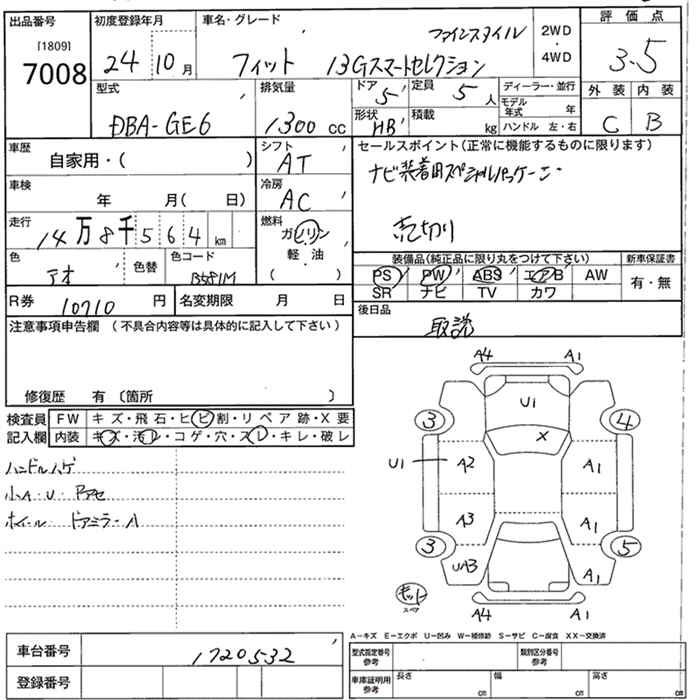 出品番号 初度登録年月 車名・グレード 評価点
[1809] 24 10月 ファインスタイル 2WD・4WD 3.5
7008 フィット 13Gスマートセレクション
型式 排気量 ドア 5 定員 5人 ディーラー・並行 外装 内装
DBA-GE6 1300cc 形状 HB 積載 kg モデル年式 年 C B
ハンドル 左・右
車歴 シフト セールスポイント(正常に機能するものに限ります)
自家用・( ) AT
車検 冷房 ナビ装着用スペシャルパッケージ
年 月( 日) AC
走行 燃料 売切り
14万8千564km ガソリン
軽・油
( )
色 色替 色コード 装備品(純正品に限り丸をつけて下さい) 新車保証書
アオ B581M PS PW ABS エアB AW 有・無
SR ナビ TV カワ
R券 10710円 名変期限 月 日 後日品
注意事項申告欄(不具合内容等は具体的に記入して下さい) 取説
修復歴 有〔箇所 〕
検査員 FW キズ・飛石・ヒビ割・リペア跡・X要
記入欄 内装 キズ・汚レ・コゲ・穴・スレ・キレ・破レ
ハンドルハゲ
小A・U・
ホイール ドアミラーA
A4 A1
U1
3 4
X
U1 A2 A1
A3 A1
3 5
UA3 A1
キット
スペア
A4 A1
A-キズ E-エクボ U-凹み W-補修跡 S-サビ C-腐食 XX-交換済
車台番号 1720532 型式指定番号 参考 類別区分番号 参考
登録番号 車庫証明用 参考 長さ cm 幅 cm 高さ cm